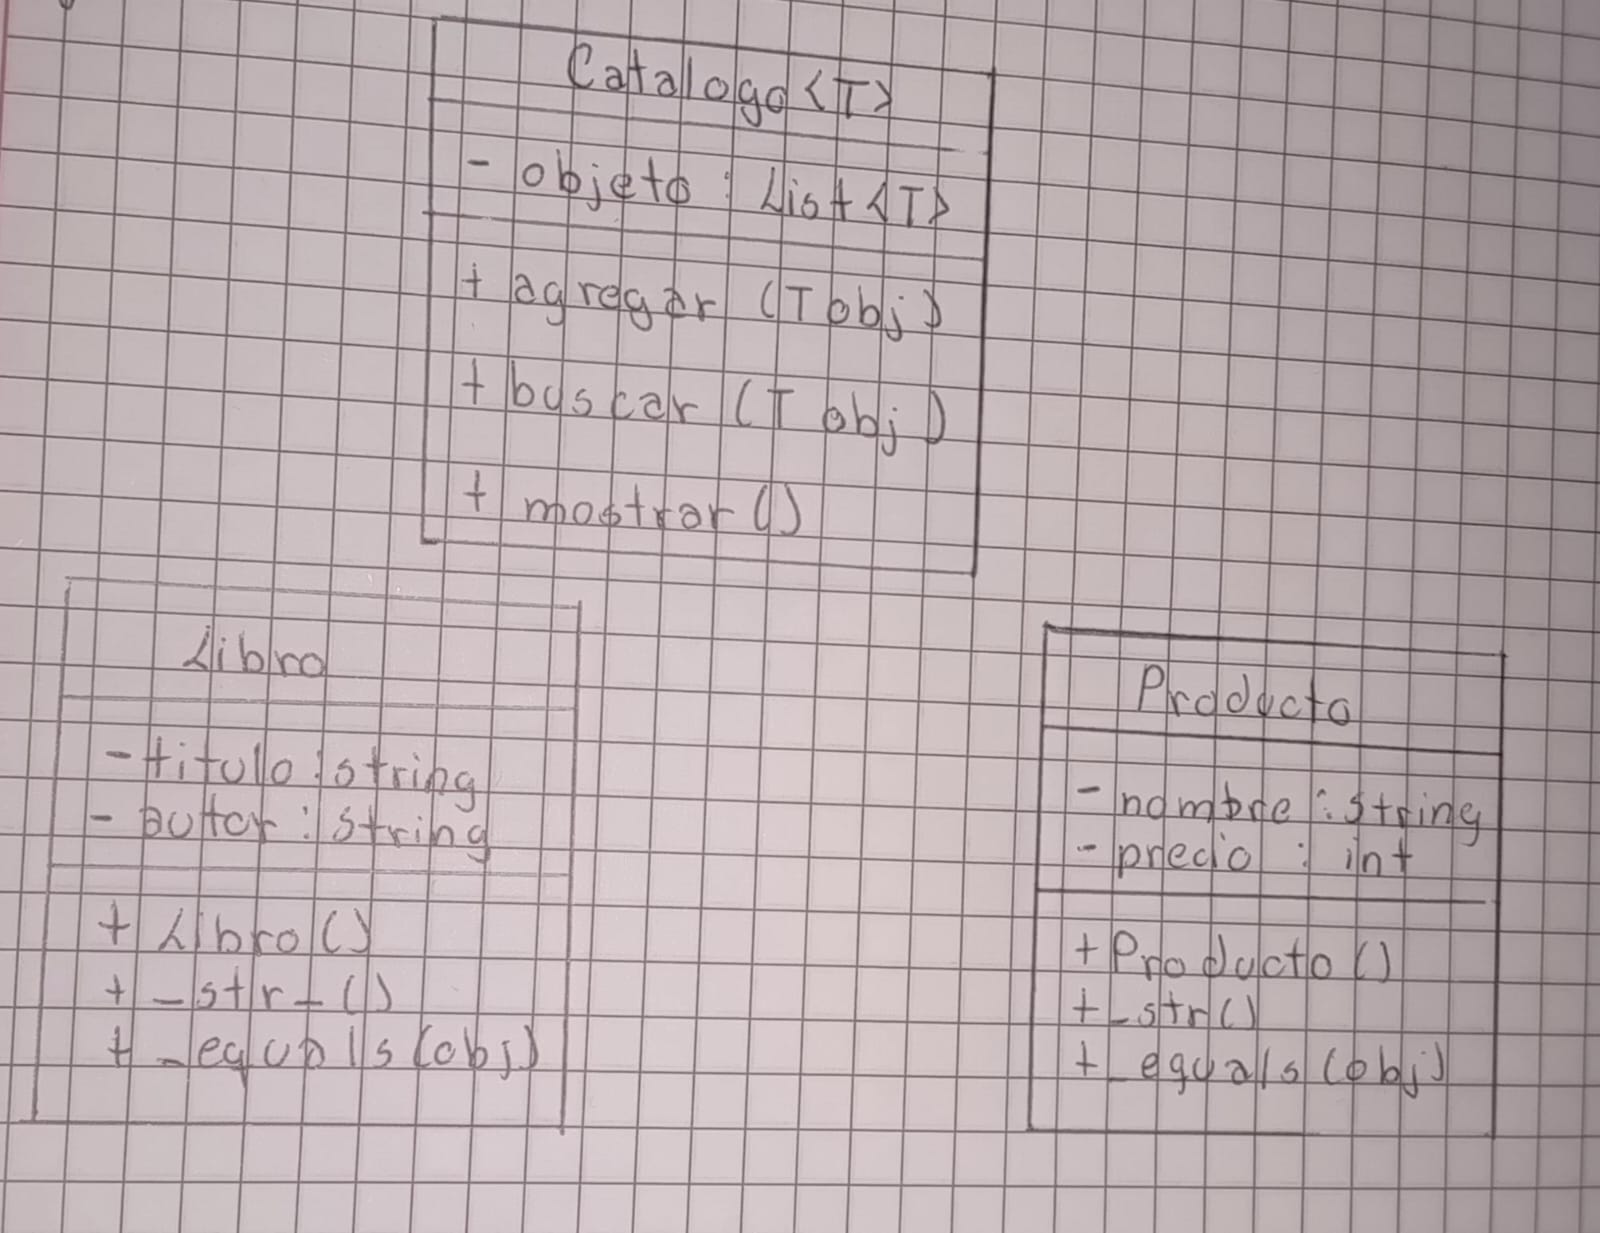 Catalogo <T>
- objeto : List <T>
+ agregar (T obj)
+ buscar (T obj)
+ mostrar ()
Libro
- titulo : string
- autor : string
+ Libro ()
+ _str_ ()
+ _equals (obj)
Producto
- nombre : string
- precio : int
+ Producto ()
+ _str ()
+ _equals (obj)